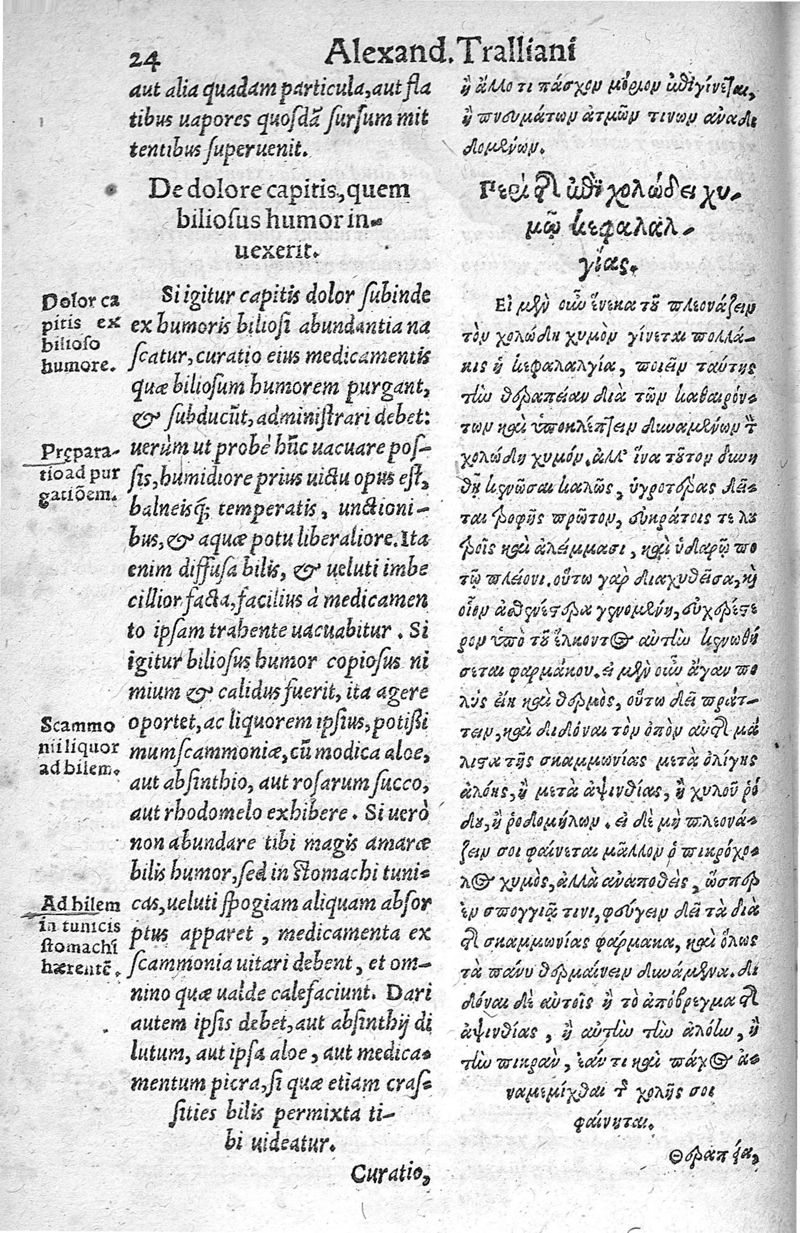 24
Alexand. Tralliani
aut alia quadam particula, aut fla
tibus uapores quosdā sursum mit
tentibus superuenit.
De dolore capitis, quem
biliosus humor in-
uexerit.
Dolor ca
pitis ex
bilioso
humore.
Si igitur capitis dolor subinde
ex humoris biliosi abundantia na
scatur, curatio eius medicamentis
quæ biliosum humorem purgant,
& subducūt, administrari debet:
Prępara-
tio ad pur
gatiōem.
uerùm ut probè hūc uacuare pos-
sis, humidiore prius uictu opus est,
balneisq; temperatis, unctioni-
bus, & aquæ potu liberaliore. Ita
enim diffusa bilis, & ueluti imbe
cillior facta, facilius à medicamen
to ipsam trahente uacuabitur. Si
igitur biliosus humor copiosus ni
mium & calidus fuerit, ita agere
Scammo
nii liquor
ad bilem.
oportet, ac liquorem ipsius, potißi
mum scammoniæ, cū modica aloe,
aut absinthio, aut rosarum succo,
aut rhodomelo exhibere. Si uerò
non abundare tibi magis amaræ
bilis humor, sed in stomachi tuni-
Ad bilem
in tunicis
stomachi
hærentē.
cas, ueluti spōgiam aliquam absor
ptus apparet, medicamenta ex
scammonia uitari debent, et om-
nino quæ ualde calefaciunt. Dari
autem ipsis debet, aut absinthij di
lutum, aut ipsa aloe, aut medica-
mentum picra, si quæ etiam cras-
sities bilis permixta ti-
bi uideatur.
Curatio,
ἢ ἄλλο τι πάσχον μόριον ἐπιγίνεται,
ἢ πνευμάτων ἀτμῶν τινων ἀναδι
δομένων.
Περὶ τῆς ἐπὶ χολώδει χυ-
μῷ κεφαλαλ-
γίας.
Εἰ μὲν οὖν ἕνεκα τοῦ πλεονάζειν
τὸν χολώδη χυμὸν γίνεται πολλά-
κις ἡ κεφαλαλγία, ποιεῖν ταύτης
τὴν θεραπείαν διὰ τῶν καθαιρόν-
των καὶ ὑποκλέπτειν δυναμένων τὸν
χολώδη χυμόν. ἀλλ' ἵνα τοῦτον δυνη
θῇ κενῶσαι καλῶς, ὑγροτέρας δεῖ-
ται τροφῆς πρῶτον, εὐκράτοις τε λου
τροῖς καὶ ἀλείμμασι, καὶ ὑδαρῷ πο
τῷ πλείονι. οὕτω γὰρ διαχυθεῖσα, καὶ
οἷον ἀσθενέστερα γενομένη, εὐχερέστε
ρον ὑπὸ τοῦ ἕλκοντος αὐτὴν κενωθή
σεται φαρμάκου. εἰ μὲν οὖν ἄγαν πο
λὺς εἴη καὶ θερμὸς, οὕτω δεῖ πράτ-
τειν, καὶ διδόναι τὸν ὀπὸν αὐτῆς μά
λιστα τῆς σκαμμωνίας μετὰ ὀλίγης
ἀλόης, ἢ μετὰ ἀψινθίας, ἢ χυλοῦ ῥό
δου, ἢ ῥοδομήλων. εἰ δὲ μὴ πλεονά-
ζειν σοι φαίνεται μᾶλλον ὁ πικρόχο-
λος χυμὸς, ἀλλὰ ἀναποθεὶς, ὥσπερ
ἐν σπογγιᾷ τινι, φεύγειν δεῖ τὰ διὰ
τῆς σκαμμωνίας φάρμακα, καὶ ὅλως
τὰ πάνυ θερμαίνειν δυνάμενα. δι
δόναι δὲ αὐτοῖς ἢ τὸ ἀπόβρεγμα τῆς
ἀψινθίας, ἢ αὐτὴν τὴν ἀλόην, ἢ
τὴν πικρὰν, ἐάν τι καὶ πάχος ἀ-
ναμεμίχθαι τῆς χολῆς σοι
φαίνηται.
Θεραπεία,